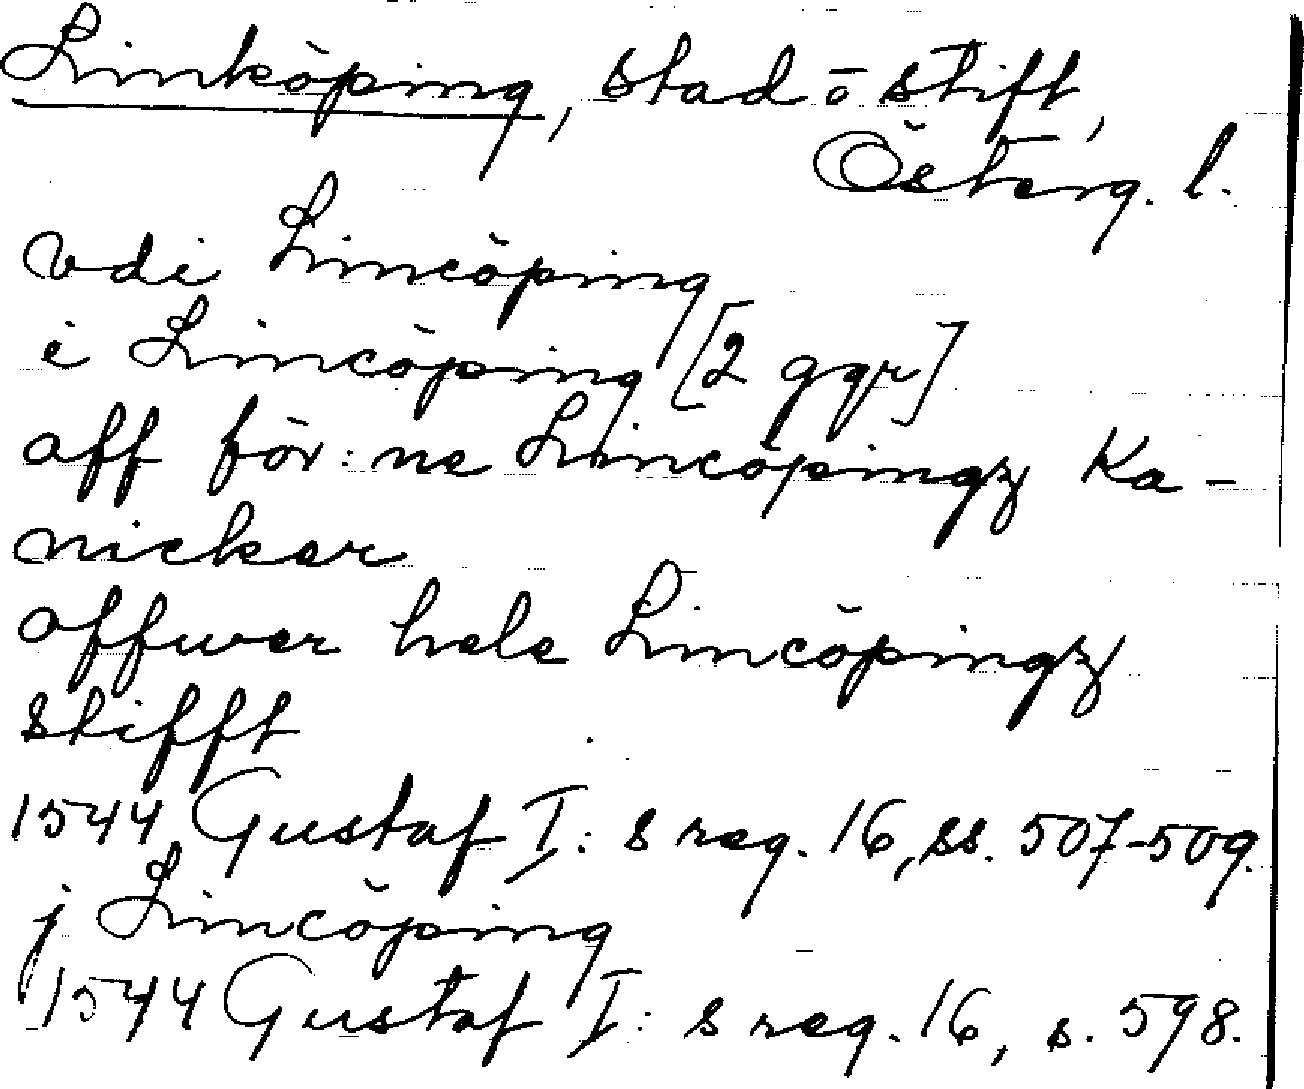 Linköping, stad o stift,
Österg. l.
vdi Lincöping
i Lincöping [2 ggr]
aff för:ne Lincöpingz Ka-
nicker
offwer hele Lincöpingz
stifft
1544 Gustaf I:s reg. 16, ss. 507-509.
j Lincöping
1544 Gustaf I:s reg. 16, s. 598.